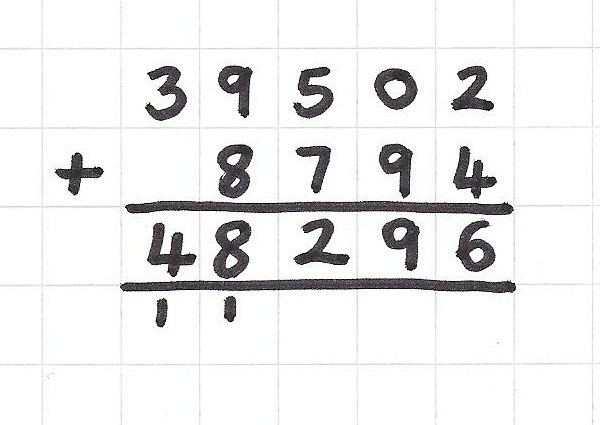 39502
+ 8794
48296
11